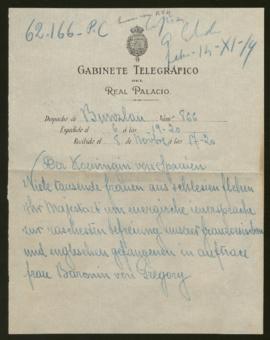 62.166-P.C
Copia
14-XI-19
GABINETE TELEGRÁFICO
DEL
REAL PALACIO.
Despacho de Núm. 866
Expedido el 6 á las 19-20
Recibido el 8 de Novbre á las 17-20
von Spanien
Viele tausende frauen aus schlesien flehen
Ihr Majestat um energische
zur raschesten befreiung unserer franzoesischen
und englischen gefangenen in auftrage
frau Baronin von Gregory